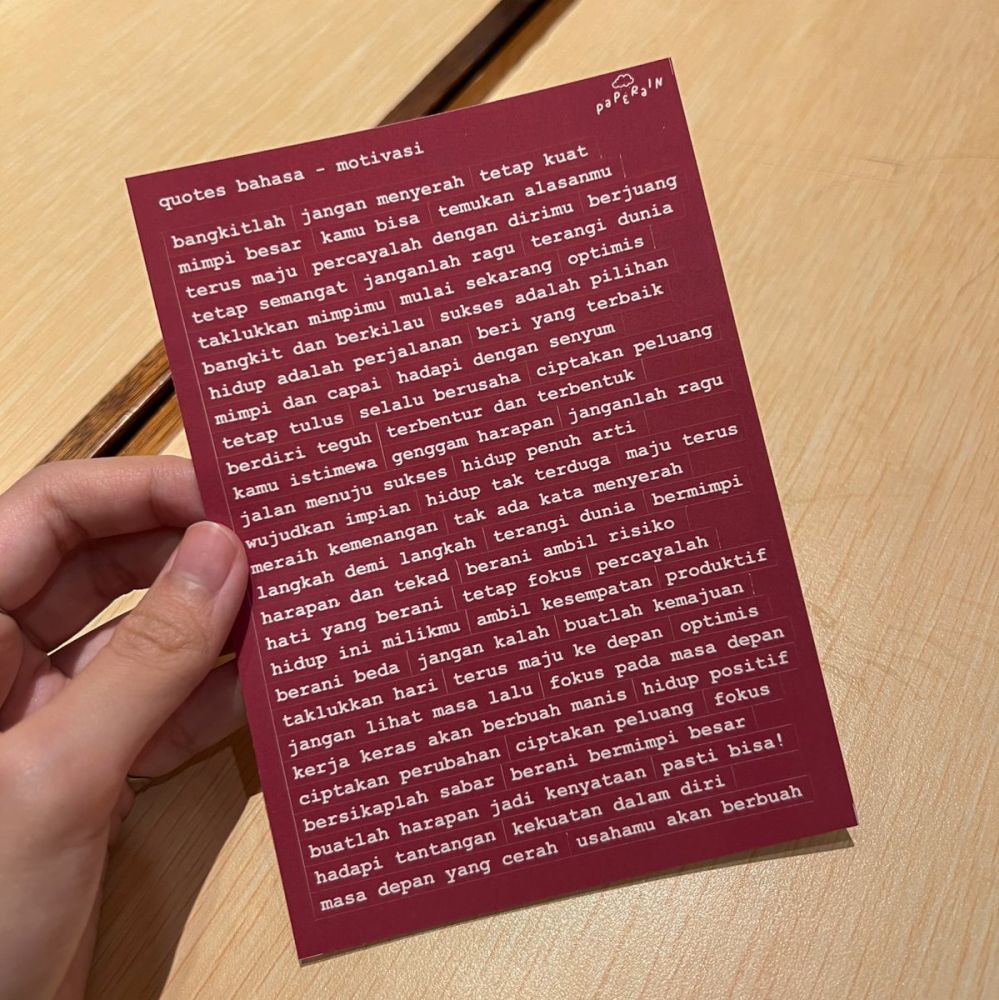 paPERaIN
quotes bahasa - motivasi
bangkitlah jangan menyerah tetap kuat
mimpi besar kamu bisa temukan alasanmu
terus maju percayalah dengan dirimu berjuang
tetap semangat janganlah ragu terangi dunia
taklukkan mimpimu mulai sekarang optimis
bangkit dan berkilau sukses adalah pilihan
hidup adalah perjalanan beri yang terbaik
mimpi dan capai hadapi dengan senyum
tetap tulus selalu berusaha ciptakan peluang
berdiri teguh terbentur dan terbentuk
kamu istimewa genggam harapan janganlah ragu
jalan menuju sukses hidup penuh arti
wujudkan impian hidup tak terduga maju terus
meraih kemenangan tak ada kata menyerah
langkah demi langkah terangi dunia bermimpi
harapan dan tekad berani ambil risiko
hati yang berani tetap fokus percayalah
hidup ini milikmu ambil kesempatan produktif
berani beda jangan kalah buatlah kemajuan
taklukkan hari terus maju ke depan optimis
jangan lihat masa lalu fokus pada masa depan
kerja keras akan berbuah manis hidup positif
ciptakan perubahan ciptakan peluang fokus
bersikaplah sabar berani bermimpi besar
buatlah harapan jadi kenyataan pasti bisa!
hadapi tantangan kekuatan dalam diri
masa depan yang cerah usahamu akan berbuah